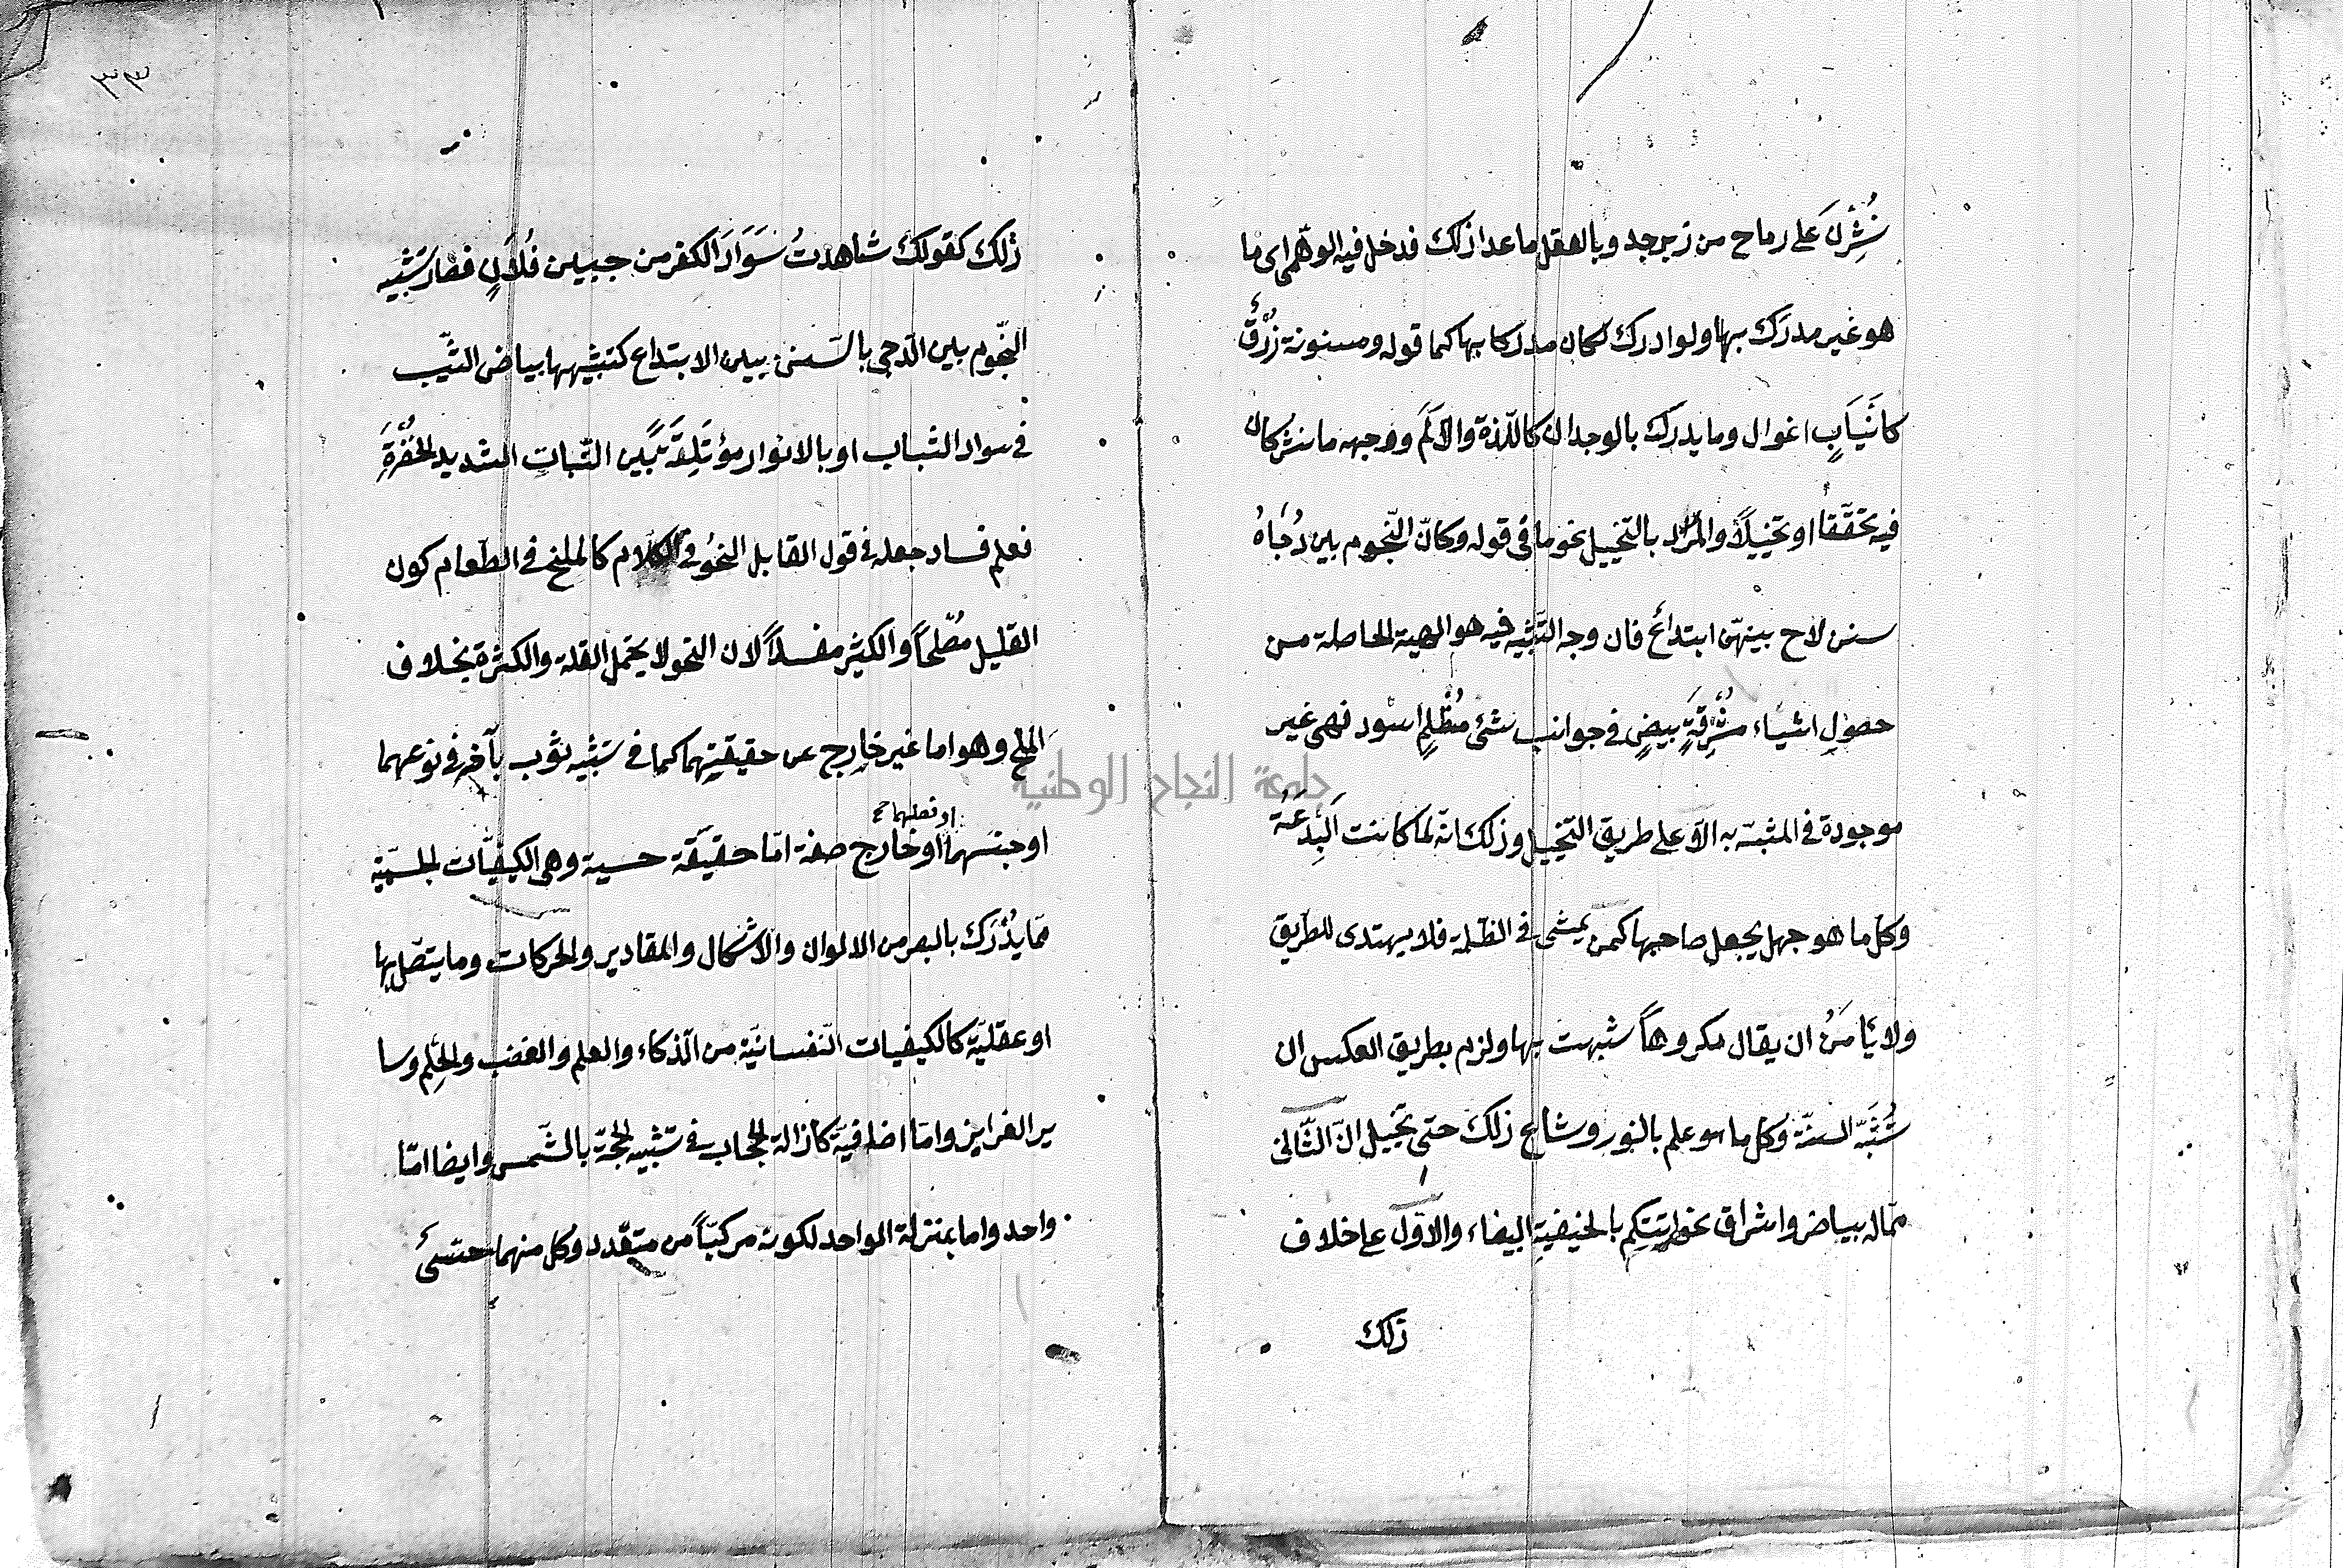 نُشِرْنَ على رماح من زبرجد وبالعقل ما عدا ذلك فدخل فيه الوهمى اى ما
هو غير مدرَك بها ولو ادرك لكان مدركا بها كما قوله ومسنونة زُرْقٌ
كانَيَابِ اغوال وما يدرَك بالوجدان كاللّذة والالَمَ ووجهه ما يشركان
فيه تحقّقًا او تخييلًا والمراد بالتّخييل نحو ما فى قوله وكانّ النّجوم بين دُجَاهُ
سنن لاح بينهنّ ابتداع فان وجه التّشبيه فيه هو الهيئة الحاصلة من
حصولِ اشياء مشْرِقَةٍ بيضٍ فى جوانب شئ مُظْلِمٍ اسود فهى غير
موجودة فى المشبّه به الّا على طريق التّخييل وذلك انّه لما كانت البِدْعَةُ
وكلّ ما هو جهل يجعل صاحبها كمن يمشى فى الظّلمة فلا يهتدى للطّريق
ولا يَأمَنُ ان يقال مكروهًا شبهت بها ولزم بطريق العكس ان
تُشَبَّه السنّة وكل ما هو علم بالنور وشاع ذلك حتى تخيل انّ الثّانى
ممّاله بياض واشراق نحو اتيتكم بالحنيفية البيضاء والاوّل على خلاف
ذلك
٣٣
ذلك كقولك شاهدتُ سَوَادَ الكفر من جبين فُلَانٍ فصار تشبيه
النّجوم بين الدّجى بالسّنن بين الابتداع كتشبيهها ببياض الشّيب
فى سواد الشباب او بالانوار مؤتَلِقَةً بين النّبات الشديد الخضْرَةِ
فعلم فساد جعله فى قول القايل النحْو فى الكلام كالملح فى الطّعام كون
القليل مُصْلحًا والكثير مفسدًا لان النحو لا يحتمل القلة والكثرة بخلاف
الملح وهو اما غير خارج عن حقيقتهما كما فى تشبيه ثوب بآخر فى نوعهما
او فصلهما صح
او جنسهما او خارج صفة امّا حقيقة حسية وهى الكيفيّات الجسميّة
ممّا يُدْرَك بالبصر من الالوان والاشكال والمقادير والحركات وما يتّصل بها
او عقليّة كالكيفيات النّفسانيّة من الذكاء والعلم والغضب والحِلم وسا
ير الغرايز واما اضافيّة كازالة الحجاب فى تشبيه الحجّة بالشّمس وايضا امّا
واحد واما بمنزلة الواحد لكونه مركبّاً من متعدد وكل منهما حسىّ
جامعة النجاح الوطنية